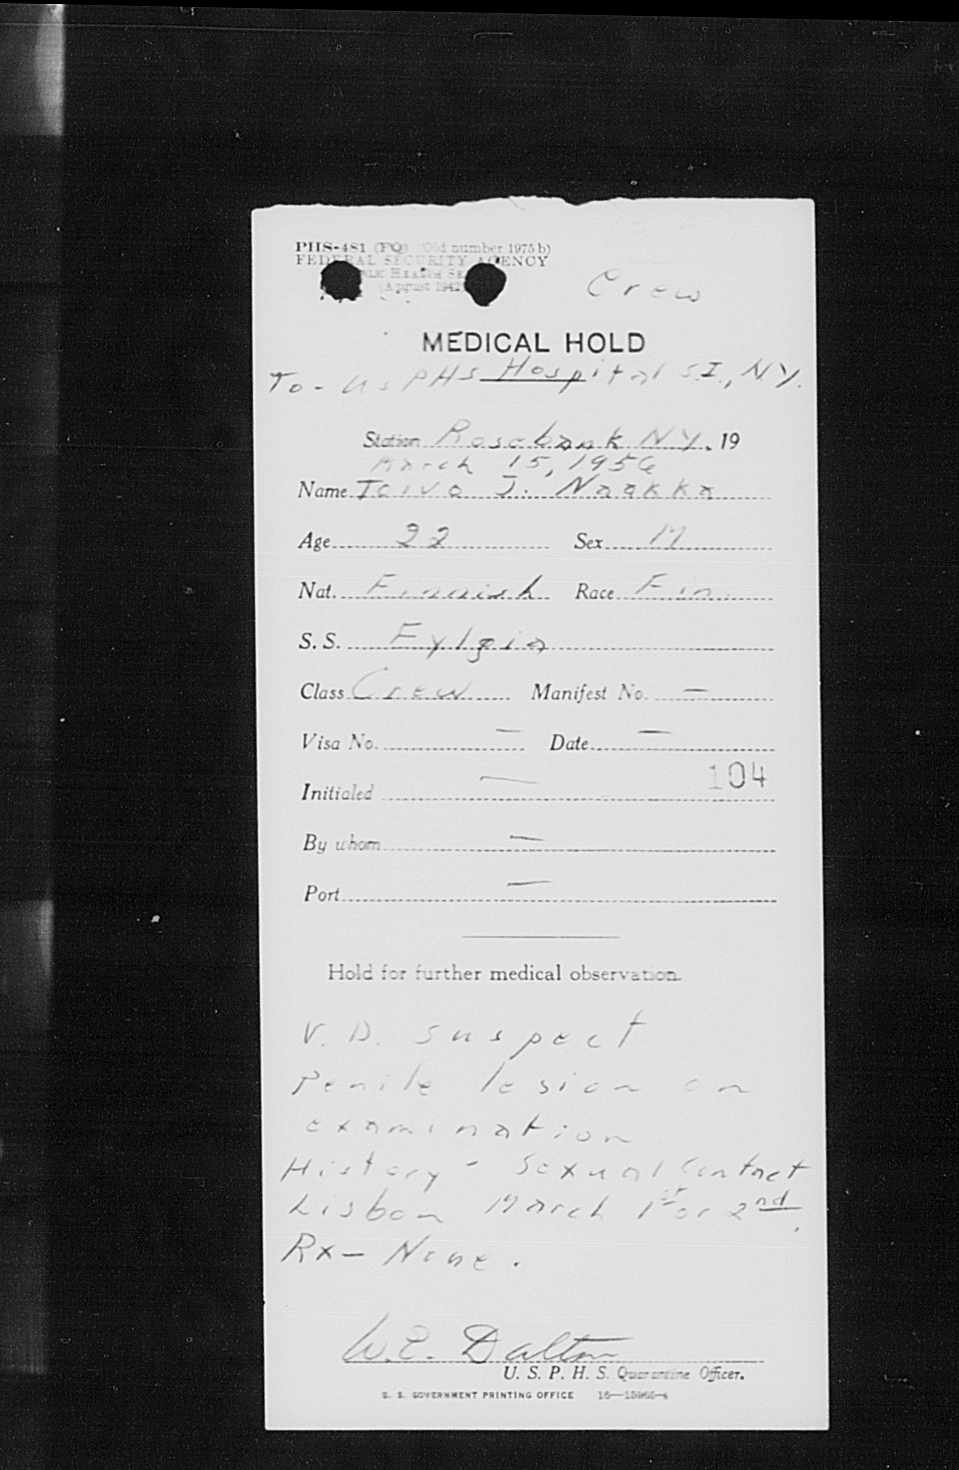 PHS-481 (FQ) (Old number 1975b)
FEDERAL SECURITY AGENCY
Public Health Se
(August 1942)
Crew
MEDICAL HOLD
To - US PHS Hospital S.I., N.Y.
Station Rosebank NY, 19
March 15, 1956
Name Toivo J. Naakka
Age 22 Sex M
Nat. Finnish Race Fin.
S. S. Fylgia
Class Crew Manifest No. —
Visa No. — Date —
104
Initialed —
By whom —
Port —
Hold for further medical observation.
V. D. suspect
Penile lesion on
examination
History - Sexual Contact
Lisbon March 1st or 2nd.
Rx — None.
W. E. Dalton
U. S. P. H. S. Quarantine Officer.
U. S. GOVERNMENT PRINTING OFFICE 16—